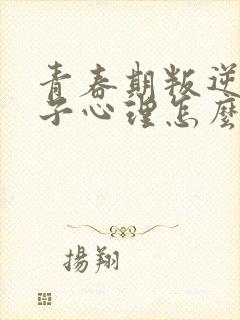 青春期叛逆
子心理怎麼
揚翔